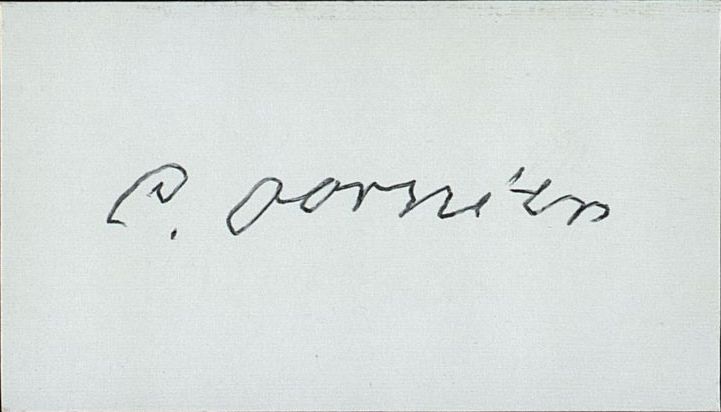 C. Dornier